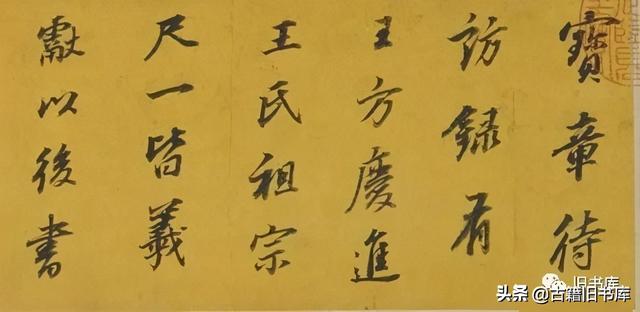 寶章待
訪錄有
王方慶進
王氏祖宗
尺一皆羲
獻以後書
旧书库
头条 @古籍旧书库